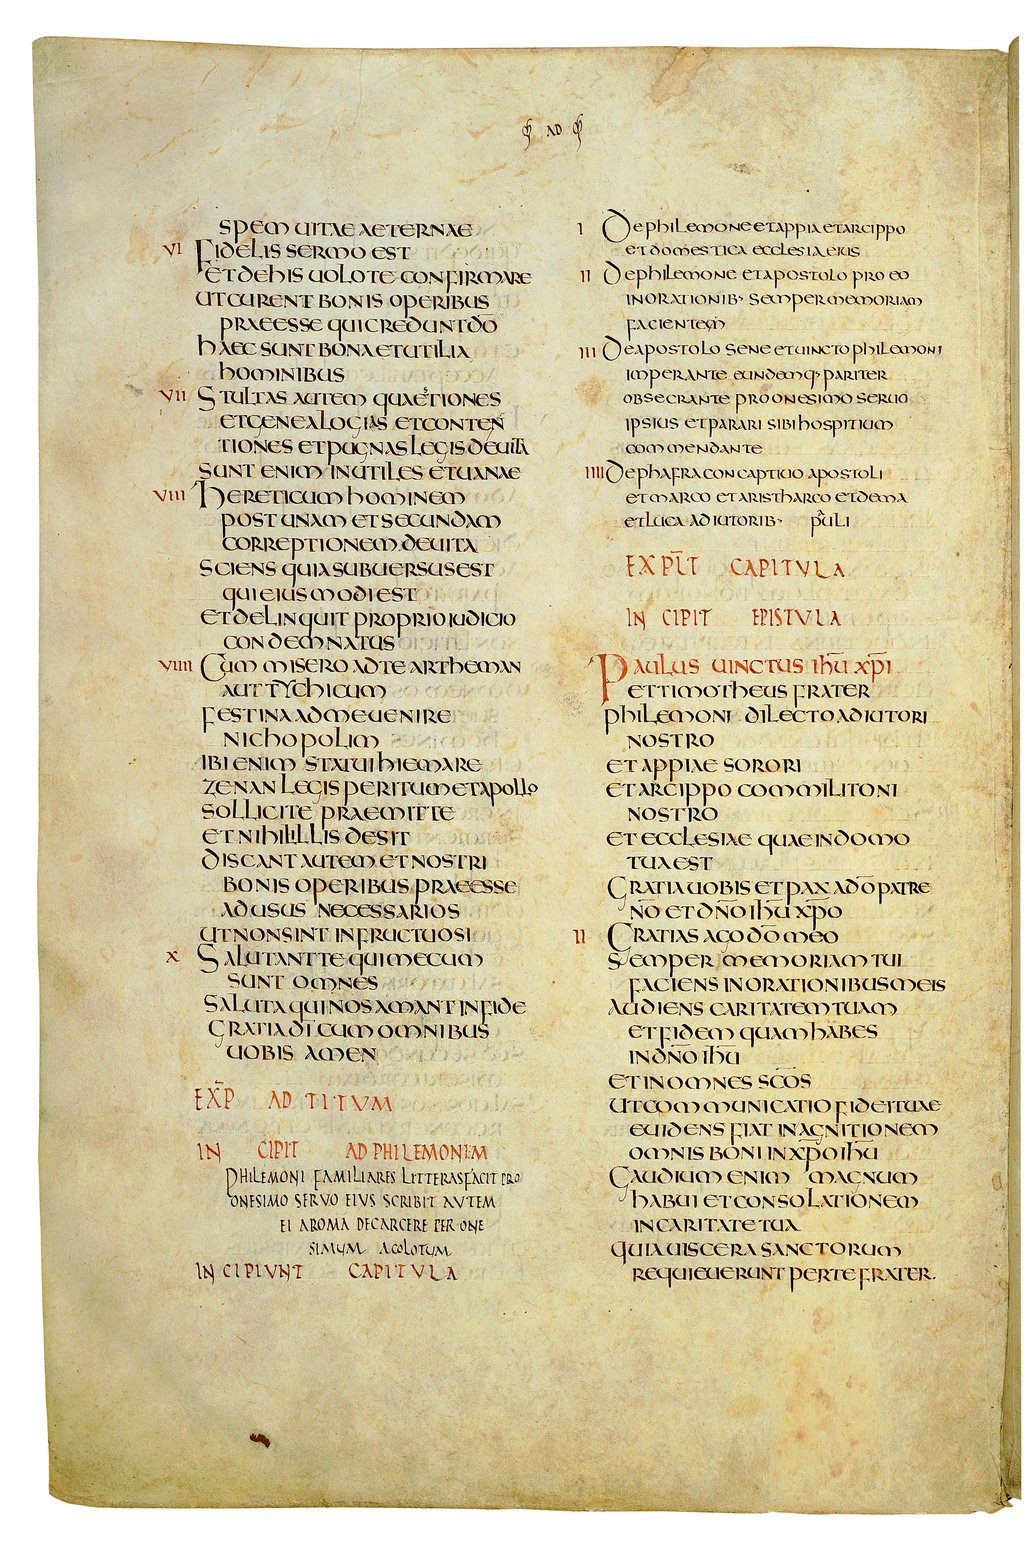 AD
SPEM UITAE AETERNAE
VI FIDELIS SERMO EST
ET DE HIS UOLO TE CONFIRMARE
UT CURENT BONIS OPERIBUS
PRAEESSE QUI CREDUNT DŌ
HAEC SUNT BONA ET UTILIA
HOMINIBUS
VII STULTAS AUTEM QUAETIONES
ET GENEALOGIAS ET CONTEN
TIONES ET PUGNAS LEGIS DEUITA
SUNT ENIM INUTILES ET UANAE
VIII HERETICUM HOMINEM
POST UNAM ET SECUNDAM
CORREPTIONEM DEUITA
SCIENS QUIA SUBUERSUS EST
QUI EIUSMODI EST
ET DELINQUIT PROPRIO IUDICIO
CONDEMNATUS
VIIII CUM MISERO AD TE ARTHEMAN
AUT TYCHICUM
FESTINA AD ME UENIRE
NICHOPOLIM
IBI ENIM STATUI HIEMARE
ZENAN LEGIS PERITUM ET APOLLO
SOLLICITE PRAEMITTE
ET NIHIL ILLIS DESIT
DISCANT AUTEM ET NOSTRI
BONIS OPERIBUS PRAEESSE
AD USUS NECESSARIOS
UT NON SINT INFRUCTUOSI
X SALUTANT TE QUI MECUM
SUNT OMNES
SALUTA QUI NOS AMANT IN FIDE
GRATIA DĪ CUM OMNIBUS
UOBIS AMEN
EXP̄ AD TITVM
INCIPIT AD PHILEMONEM
PHILEMONI FAMILIARES LITTERAS FACIT PRO
ONESIMO SERVO EIVS SCRIBIT AVTEM
EI A ROMA DE CARCERE PER ONE
SIMVM ACOLOTVM
INCIPIVNT CAPITVLA
I DE PHILEMONE ET APPIA ET ARCIPPO
ET DOMESTICA ECCLESIA EIUS
II DE PHILEMONE ET APOSTOLO PRO EO
IN ORATIONIB· SEMPER MEMORIAM
FACIENTEM
III DE APOSTOLO SENE ET UINCTO PHILEMONI
IMPERANTE EUNDEMQ· PARITER
OBSECRANTE PRO ONESIMO SERUO
IPSIUS ET PARARI SIBI HOSPITIUM
COMMENDANTE
IIII DE PHAFRA CONCAPTIUO APOSTOLI
ET MARCO ET ARISTHARCO ET DEMA
ET LUCA ADIUTORIB· PAULI
EXPLĪT CAPITVLA
INCIPIT EPISTVLA
PAULUS UINCTUS IHŪ XPĪ
ET TIMOTHEUS FRATER
PHILEMONI DILECTO ADIUTORI
NOSTRO
ET APPIAE SORORI
ET ARCIPPO COMMILITONI
NOSTRO
ET ECCLESIAE QUAE IN DOMO
TUA EST
GRATIA UOBIS ET PAX A DŌ PATRE
NŌ ET DN̄O IHŪ XP̄O
II GRATIAS AGO DŌ MEO
SEMPER MEMORIAM TUI
FACIENS IN ORATIONIBUS MEIS
AUDIENS CARITATEM TUAM
ET FIDEM QUAM HABES
IN DN̄O IHŪ
ET IN OMNES SCŌS
UT COMMUNICATIO FIDEI TUAE
EUIDENS FIAT IN AGNITIONEM
OMNIS BONI IN XP̄O IHŪ
GAUDIUM ENIM MAGNUM
HABUI ET CONSOLATIONEM
IN CARITATE TUA
QUIA UISCERA SANCTORUM
REQUIEUERUNT PER TE FRATER.